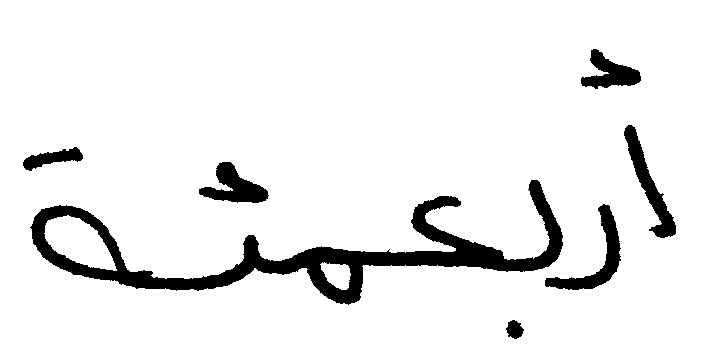 أربعمئة